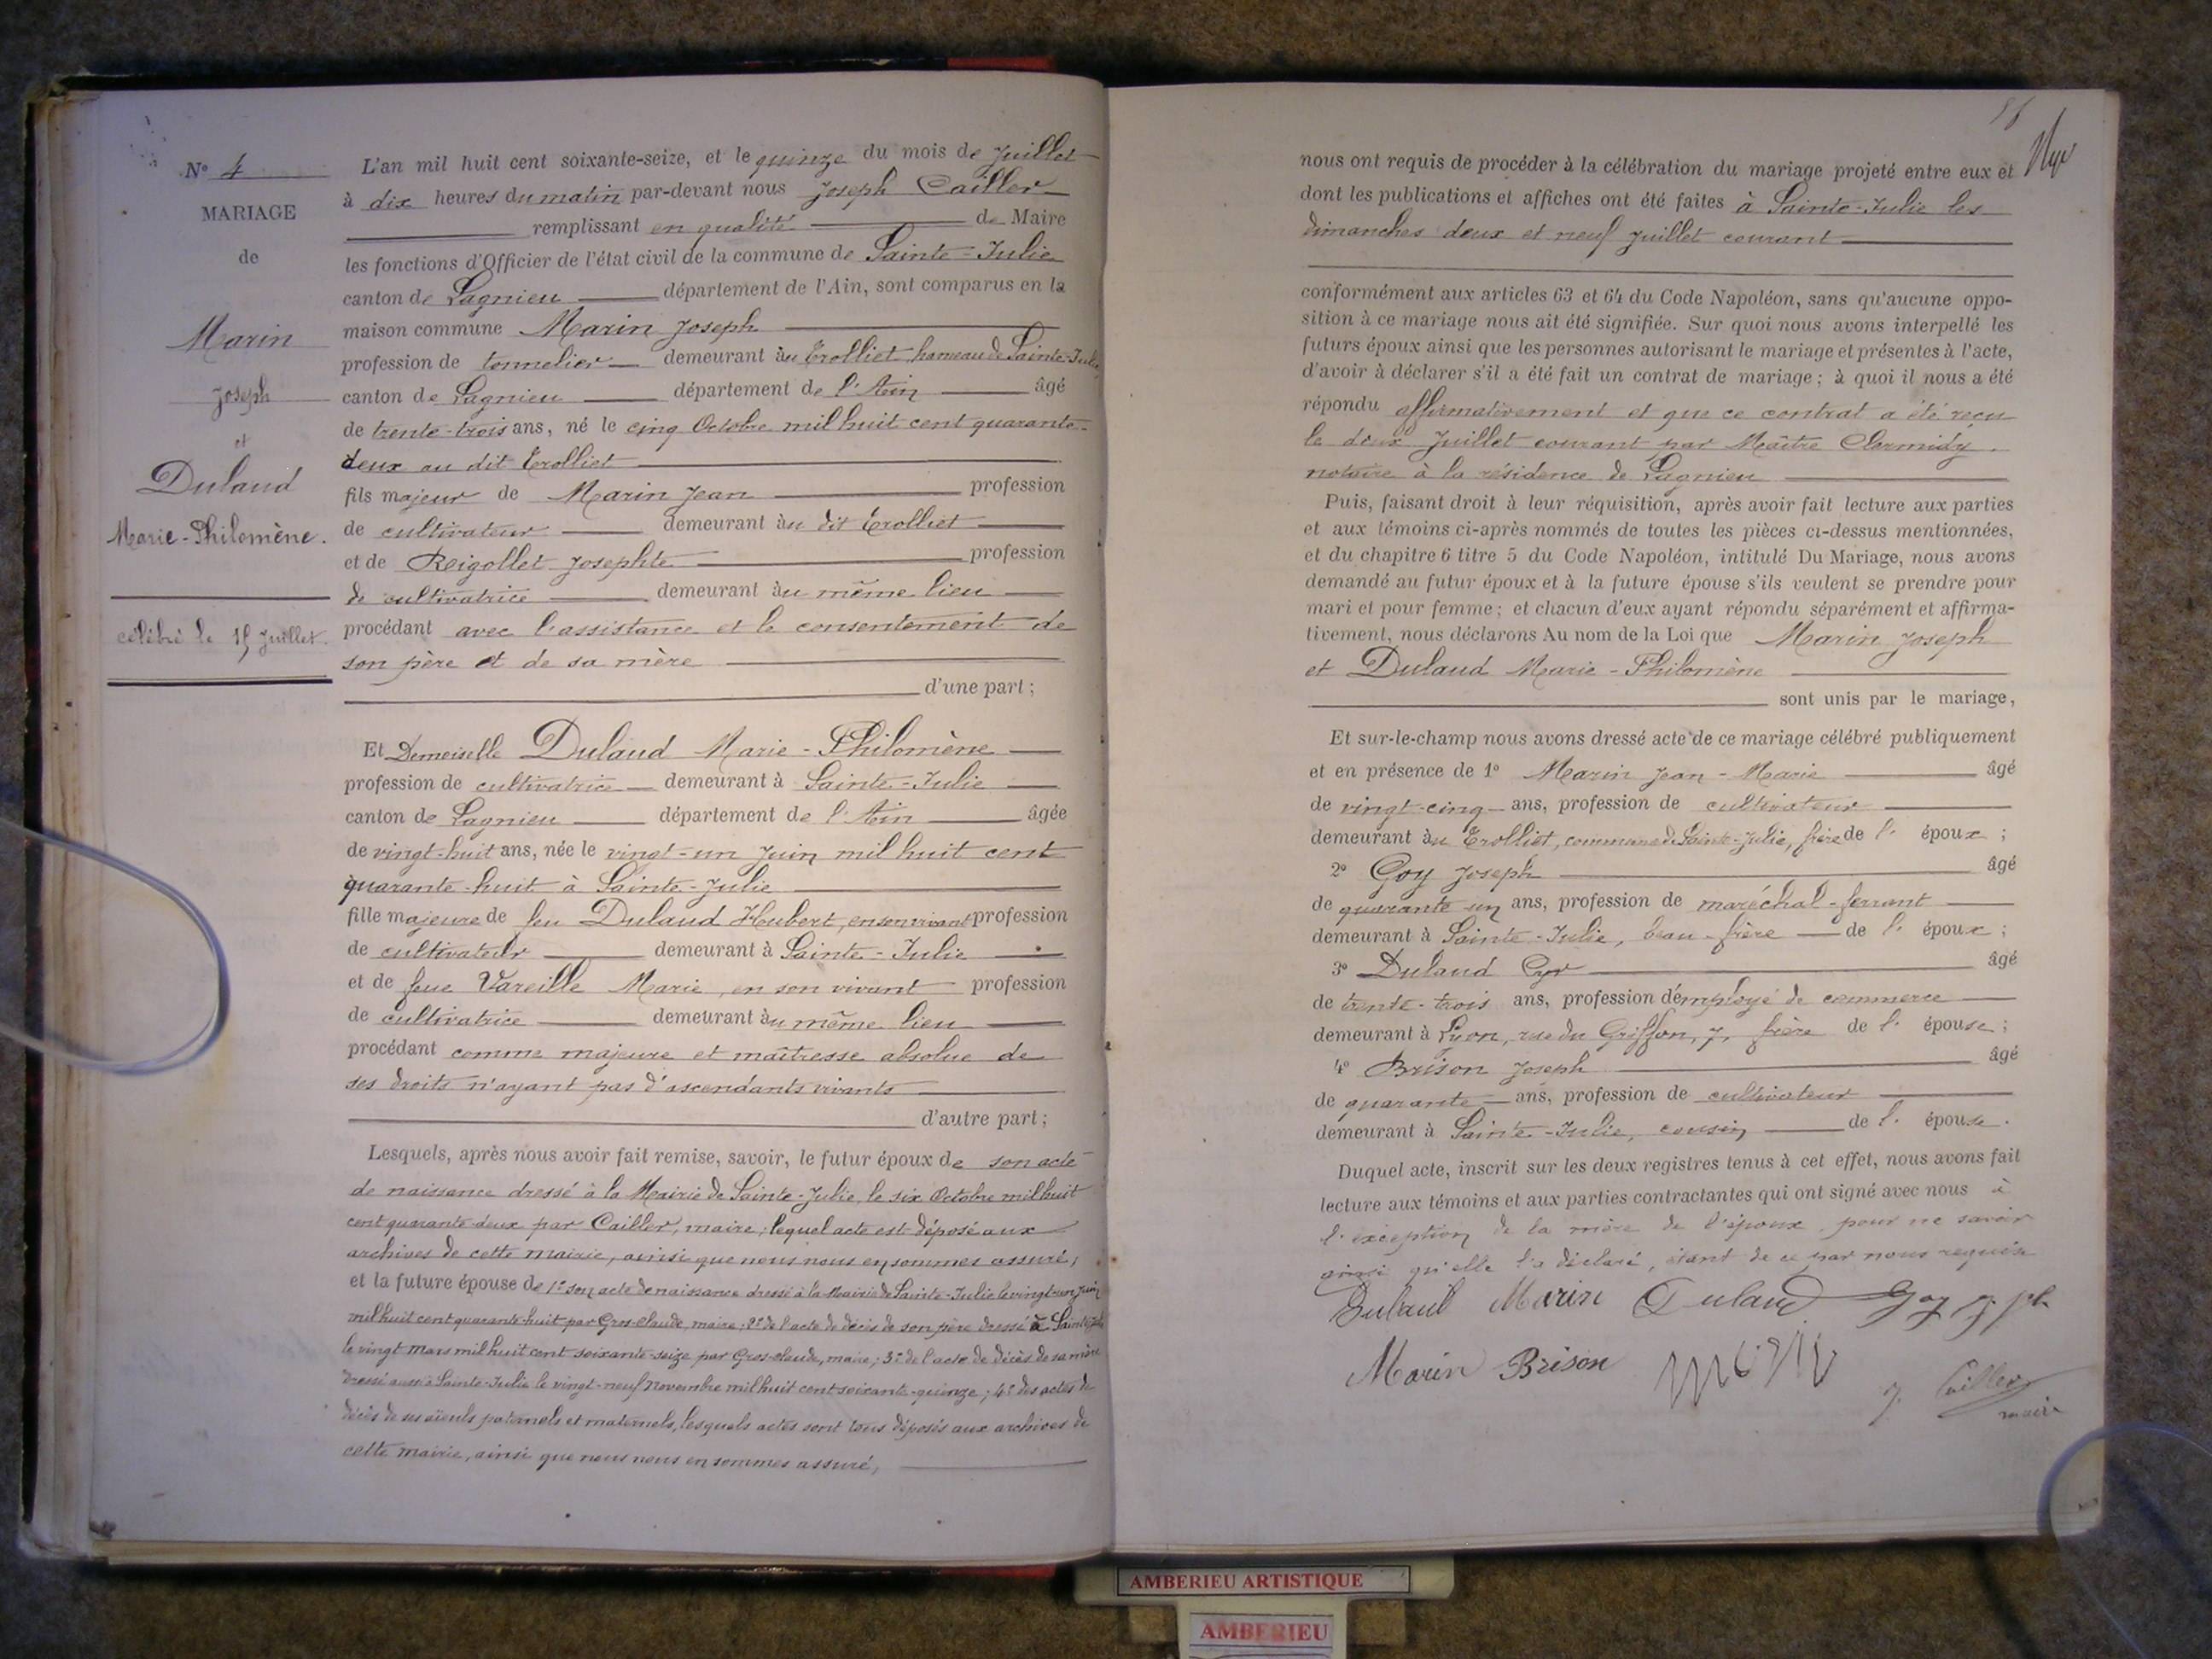 N° 4
MARIAGE
de
Marin
Joseph
et
Dulaud
Marie-Philomène.
célébré le 15 Juillet.
L'an mil huit cent soixante-seize, et le quinze du mois de Juillet
à dix heures du matin par-devant nous Joseph Cailler
remplissant en qualité de Maire
les fonctions d'Officier de l'état civil de la commune de Sainte-Julie
canton de Lagnieu département de l'Ain, sont comparus en la
maison commune Marin Joseph
profession de tonnelier demeurant au Trolliet, hameau de Sainte-Julie,
canton de Lagnieu département de l'Ain âgé
de trente-trois ans, né le cinq Octobre mil huit cent quarante-
deux au dit Trolliet
fils majeur de Marin Jean profession
de cultivateur demeurant au dit Trolliet
et de Reigollet Josephte profession
de cultivatrice demeurant au même lieu
procédant avec l'assistance et le consentement de
son père et de sa mère
d'une part;
Et Demoiselle Dulaud Marie-Philomène
profession de cultivatrice demeurant à Sainte-Julie
canton de Lagnieu département de l'Ain âgée
de vingt-huit ans, née le vingt-un Juin mil huit cent
quarante-huit à Sainte-Julie
fille majeure de feu Dulaud Hubert, en son vivant profession
de cultivateur demeurant à Sainte-Julie
et de feue Vareille Marie, en son vivant profession
de cultivatrice demeurant au même lieu
procédant comme majeure et maîtresse absolue de
ses droits n'ayant pas d'ascendants vivants
d'autre part;
Lesquels, après nous avoir fait remise, savoir, le futur époux de son acte
de naissance dressé à la Mairie de Sainte-Julie, le six Octobre mil huit
cent quarante-deux par Cailler, maire; lequel acte est déposé aux
archives de cette mairie, ainsi que nous nous en sommes assuré,
et la future épouse de 1° son acte de naissance dressé à la Mairie de Sainte-Julie le vingt-un Juin
mil huit cent quarante-huit par Gros-claude, maire; 2° de l'acte de décès de son père dressé à Sainte-Julie
le vingt Mars mil huit cent soixante-seize par Gros-claude, maire; 3° de l'acte de décès de sa mère
dressé aussi à Sainte-Julie le vingt-neuf Novembre mil huit cent soixante-quinze; 4° des actes de
décès de ses aïeuls paternels et maternels, lesquels actes sont tous déposés aux archives de
cette mairie, ainsi que nous nous en sommes assuré,
nous ont requis de procéder à la célébration du mariage projeté entre eux et
dont les publications et affiches ont été faites à Sainte-Julie les
dimanches deux et neuf Juillet courant
conformément aux articles 63 et 64 du Code Napoléon, sans qu'aucune oppo-
sition à ce mariage nous ait été signifiée. Sur quoi nous avons interpellé les
futurs époux ainsi que les personnes autorisant le mariage et présentes à l'acte,
d'avoir à déclarer s'il a été fait un contrat de mariage; à quoi il nous a été
répondu affirmativement et que ce contrat a été reçu
le deux Juillet courant par Maître
notaire à la résidence de Lagnieu
Puis, faisant droit à leur réquisition, après avoir fait lecture aux parties
et aux témoins ci-après nommés de toutes les pièces ci-dessus mentionnées,
et du chapitre 6 titre 5 du Code Napoléon, intitulé Du Mariage, nous avons
demandé au futur époux et à la future épouse s'ils veulent se prendre pour
mari et pour femme; et chacun d'eux ayant répondu séparément et affirma-
tivement, nous déclarons Au nom de la Loi que Marin Joseph
et Dulaud Marie-Philomène
sont unis par le mariage,
Et sur-le-champ nous avons dressé acte de ce mariage célébré publiquement
et en présence de 1° Marin Jean-Marie âgé
de vingt-cinq ans, profession de cultivateur
demeurant au Trolliet, commune de Sainte-Julie, frère de l'époux;
2° Goy Joseph âgé
de quarante-un ans, profession de maréchal-ferrant
demeurant à Sainte-Julie, beau-frère de l'époux;
3° Dulaud Cyr âgé
de trente-trois ans, profession d'employé de commerce
demeurant à Lyon, rue du Griffon, 7, frère de l'épouse;
4° Brison Joseph âgé
de quarante ans, profession de cultivateur
demeurant à Sainte-Julie, cousin de l'épouse.
Duquel acte, inscrit sur les deux registres tenus à cet effet, nous avons fait
lecture aux témoins et aux parties contractantes qui ont signé avec nous à
l'exception de la mère de l'époux pour ne savoir
ainsi qu'elle l'a déclaré, étant de ce par nous requise
Dulaud Marin Dulaud Goy Jph
Marin Brison
J. Cailler
maire
AMBERIEU ARTISTIQUE
AMBERIEU